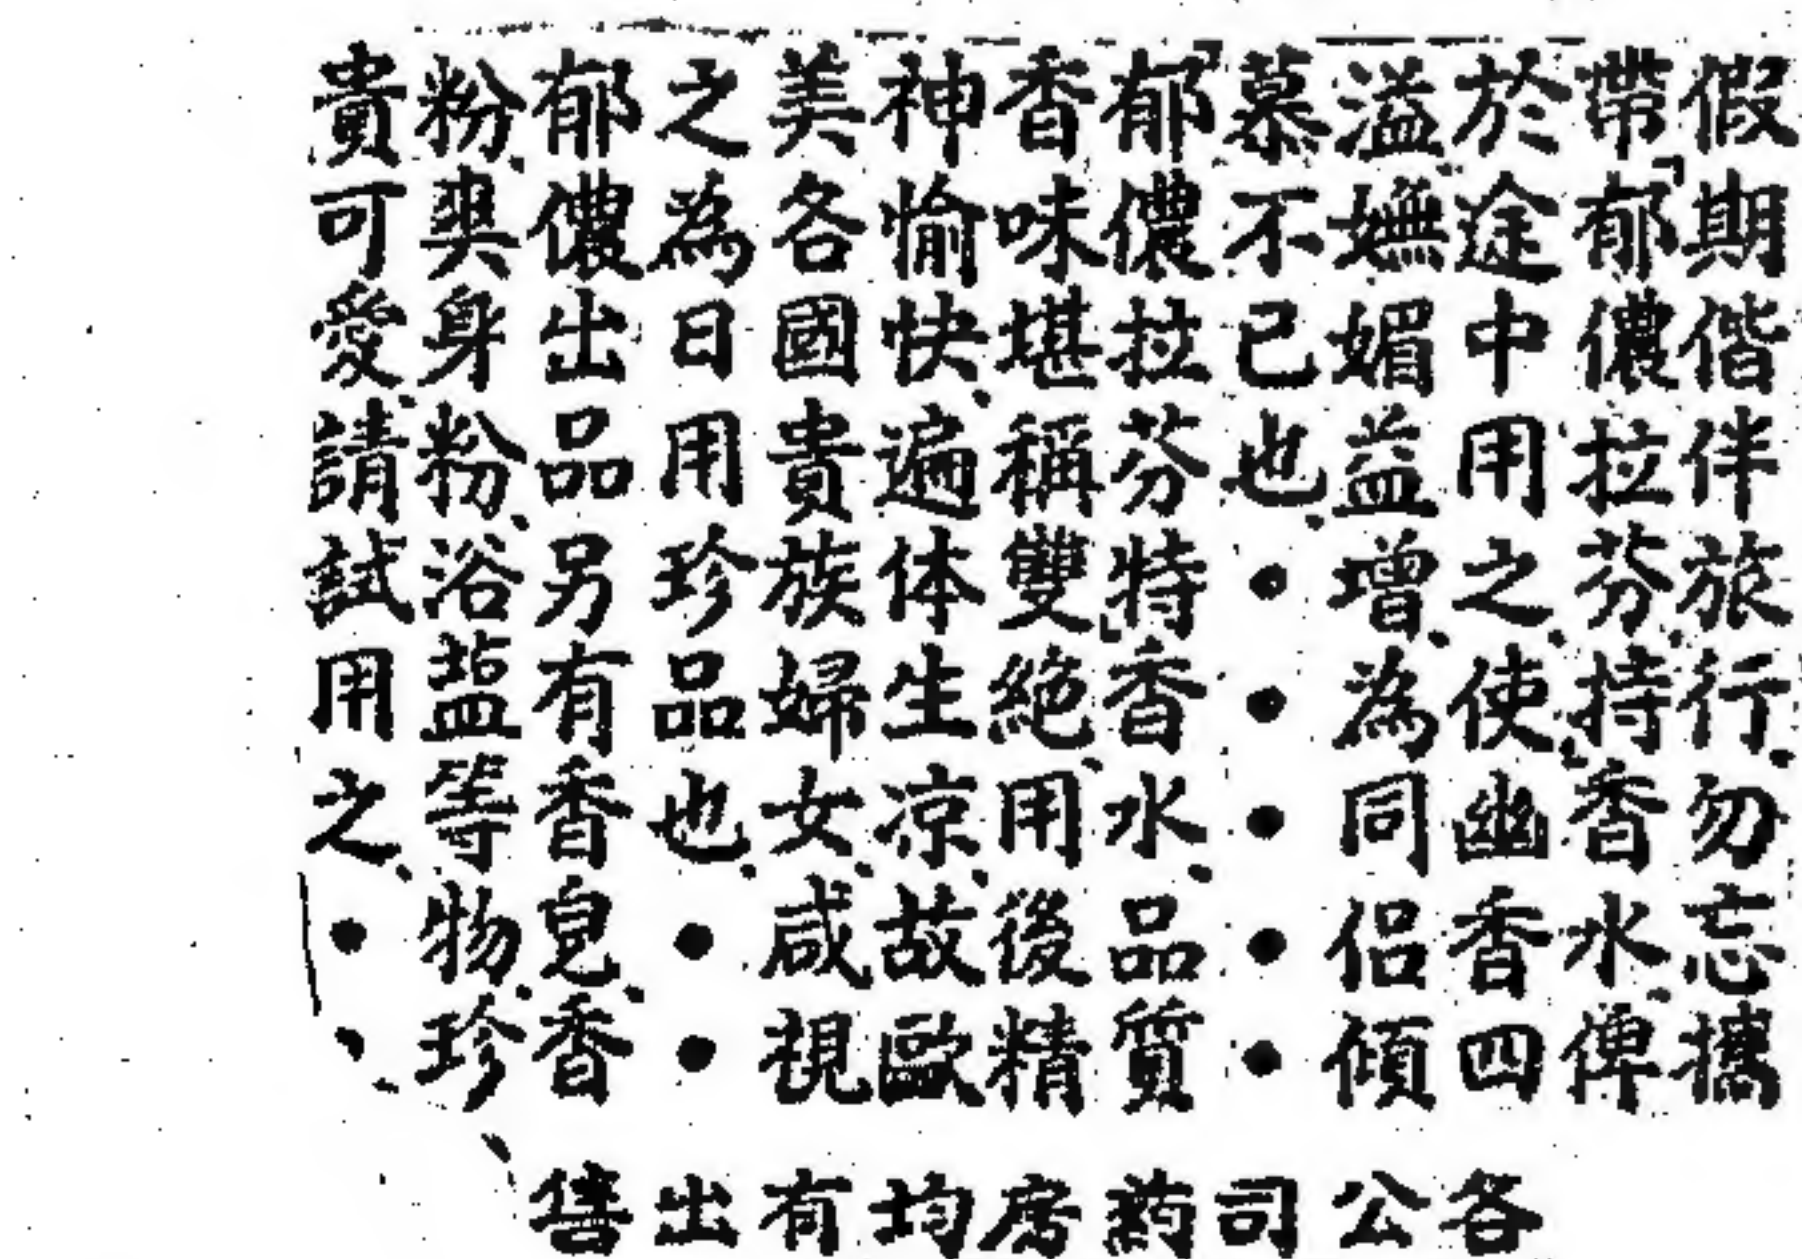 假期偕伴旅行、勿忘攜
帶「郁儂拉芬」持香水、俾
於途中用之、使幽香四
溢、嫵媚益增、為同侶傾
慕不已也、●●●●●
「郁儂拉芬特」香水、品質
香味堪稱雙絕、用後精
神愉快、遍体生涼、故歐
美各國貴族婦女、咸視
之為日用珍品也、●●
郁儂出品另有香皂、香
粉、爽身粉、浴盐等物、珍
貴可愛、請試用之、●
各公司葯房均有出售